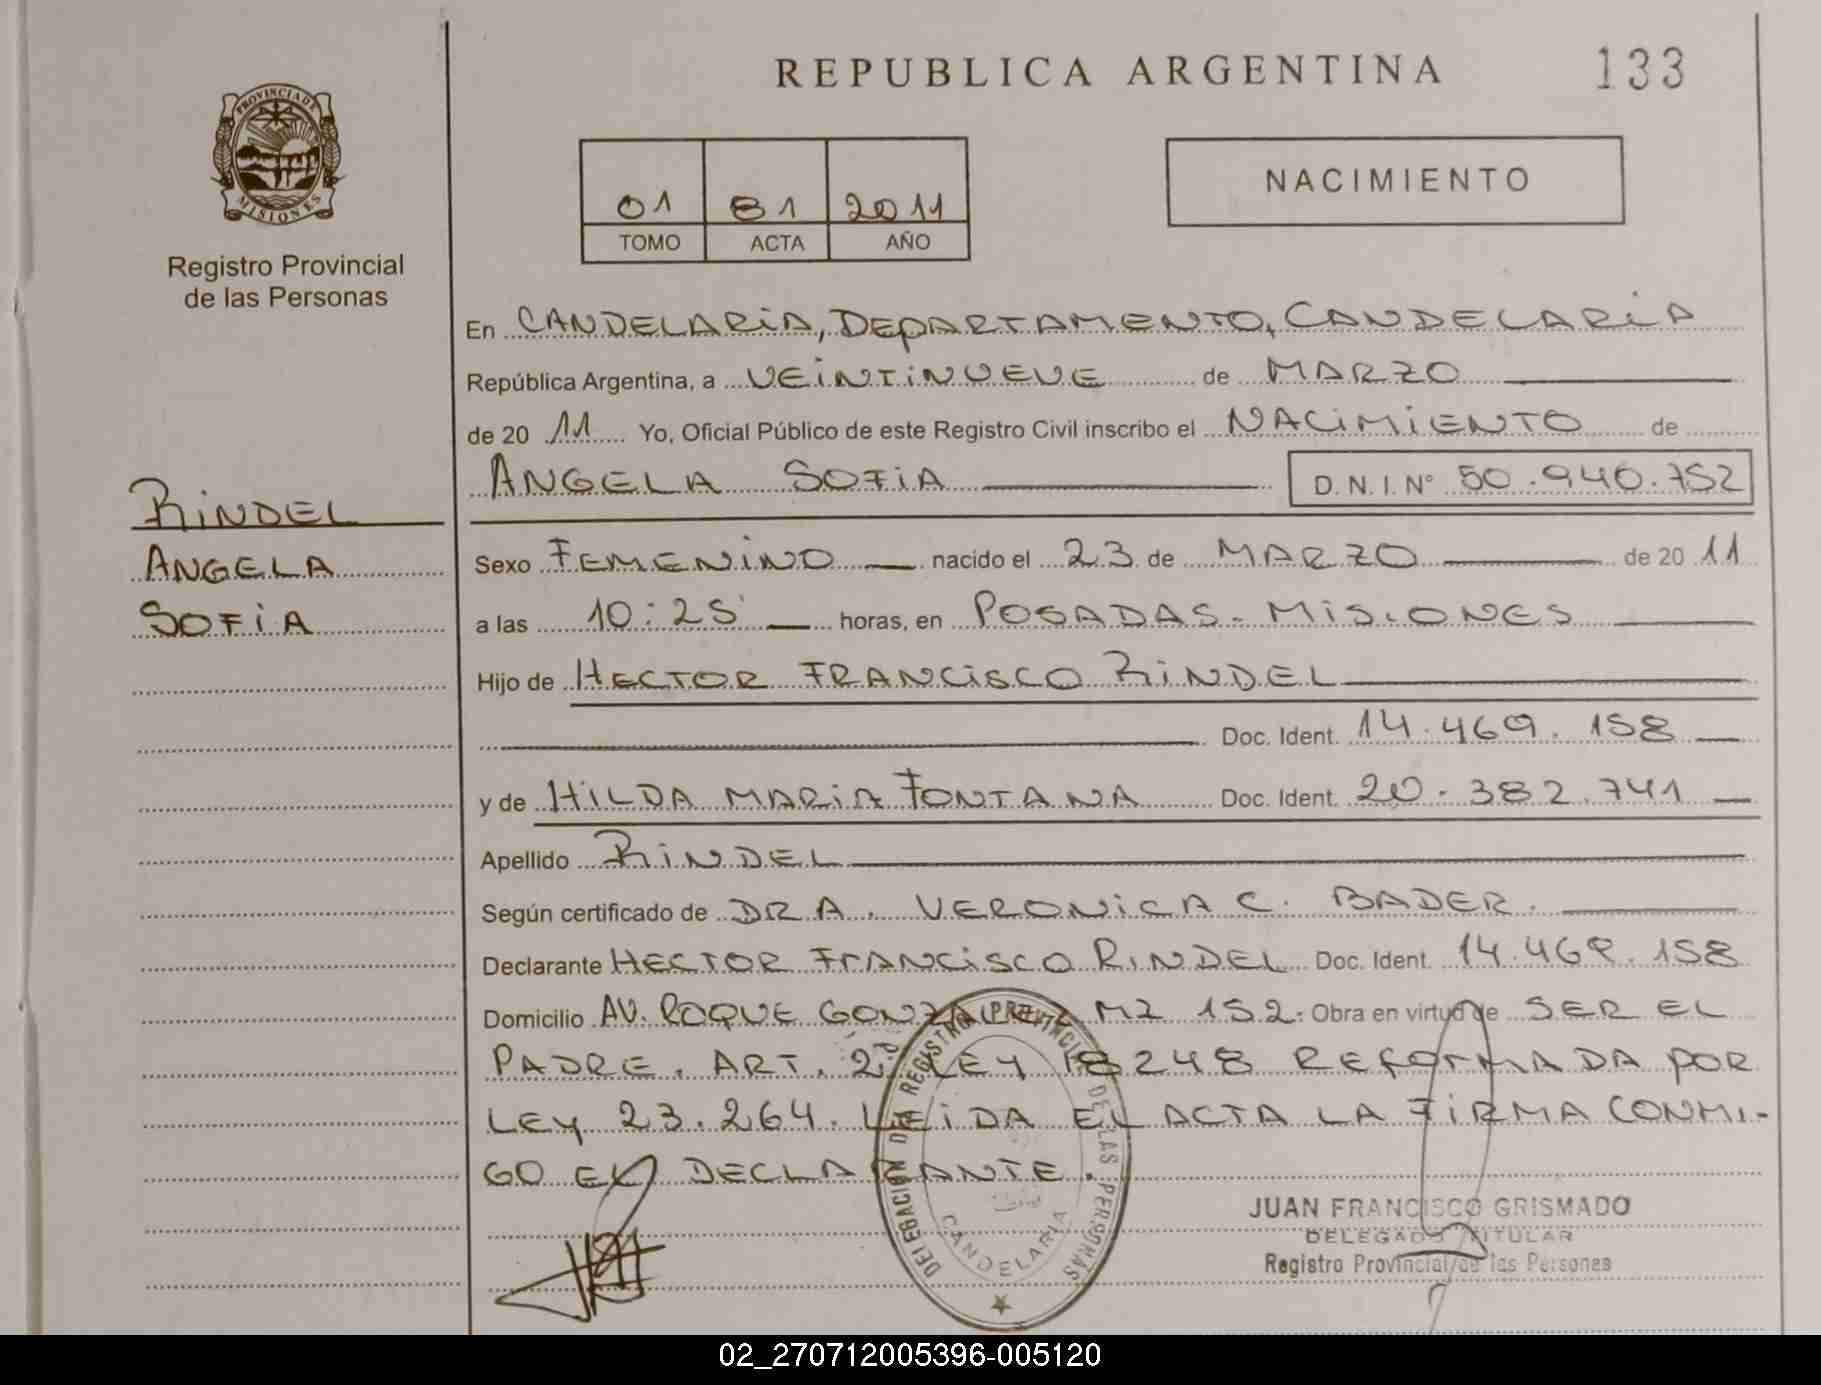 REPUBLICA ARGENTINA
133
PROVINCIA DE
MISIONES
Registro Provincial
de las Personas
01 81 2011
TOMO ACTA AÑO
NACIMIENTO
En CANDELARIA, DEPARTAMENTO, CANDELARIA
República Argentina, a VEINTINUEVE de MARZO
de 20 11 Yo, Oficial Público de este Registro Civil inscribo el NACIMIENTO de
ANGELA SOFIA D.N.I. N° 50.940.752
RINDEL
ANGELA
SOFIA
Sexo FEMENINO nacido el 23 de MARZO de 20 11
a las 10:25 horas, en POSADAS - MISIONES
Hijo de HECTOR FRANCISCO RINDEL
Doc. Ident. 14.469.158
y de HILDA MARIA FONTANA Doc. Ident. 20.382.741
Apellido RINDEL
Según certificado de DRA. VERONICA C. BADER.
Declarante HECTOR FRANCISCO RINDEL Doc. Ident. 14.469.158
Domicilio AV. ROQUE GONZALEZ MZ 152. Obra en virtud de SER EL
PADRE. ART. 2° LEY 18248 REFORMADA POR
LEY 23.264. LEIDA EL ACTA LA FIRMA CONMI-
GO EL DECLARANTE.
DELEGACION DEL REGISTRO PROVINCIAL DE LAS PERSONAS
CANDELARIA
JUAN FRANCISCO GRISMADO
DELEGADO TITULAR
Registro Provincial de las Personas
02_270712005396-005120